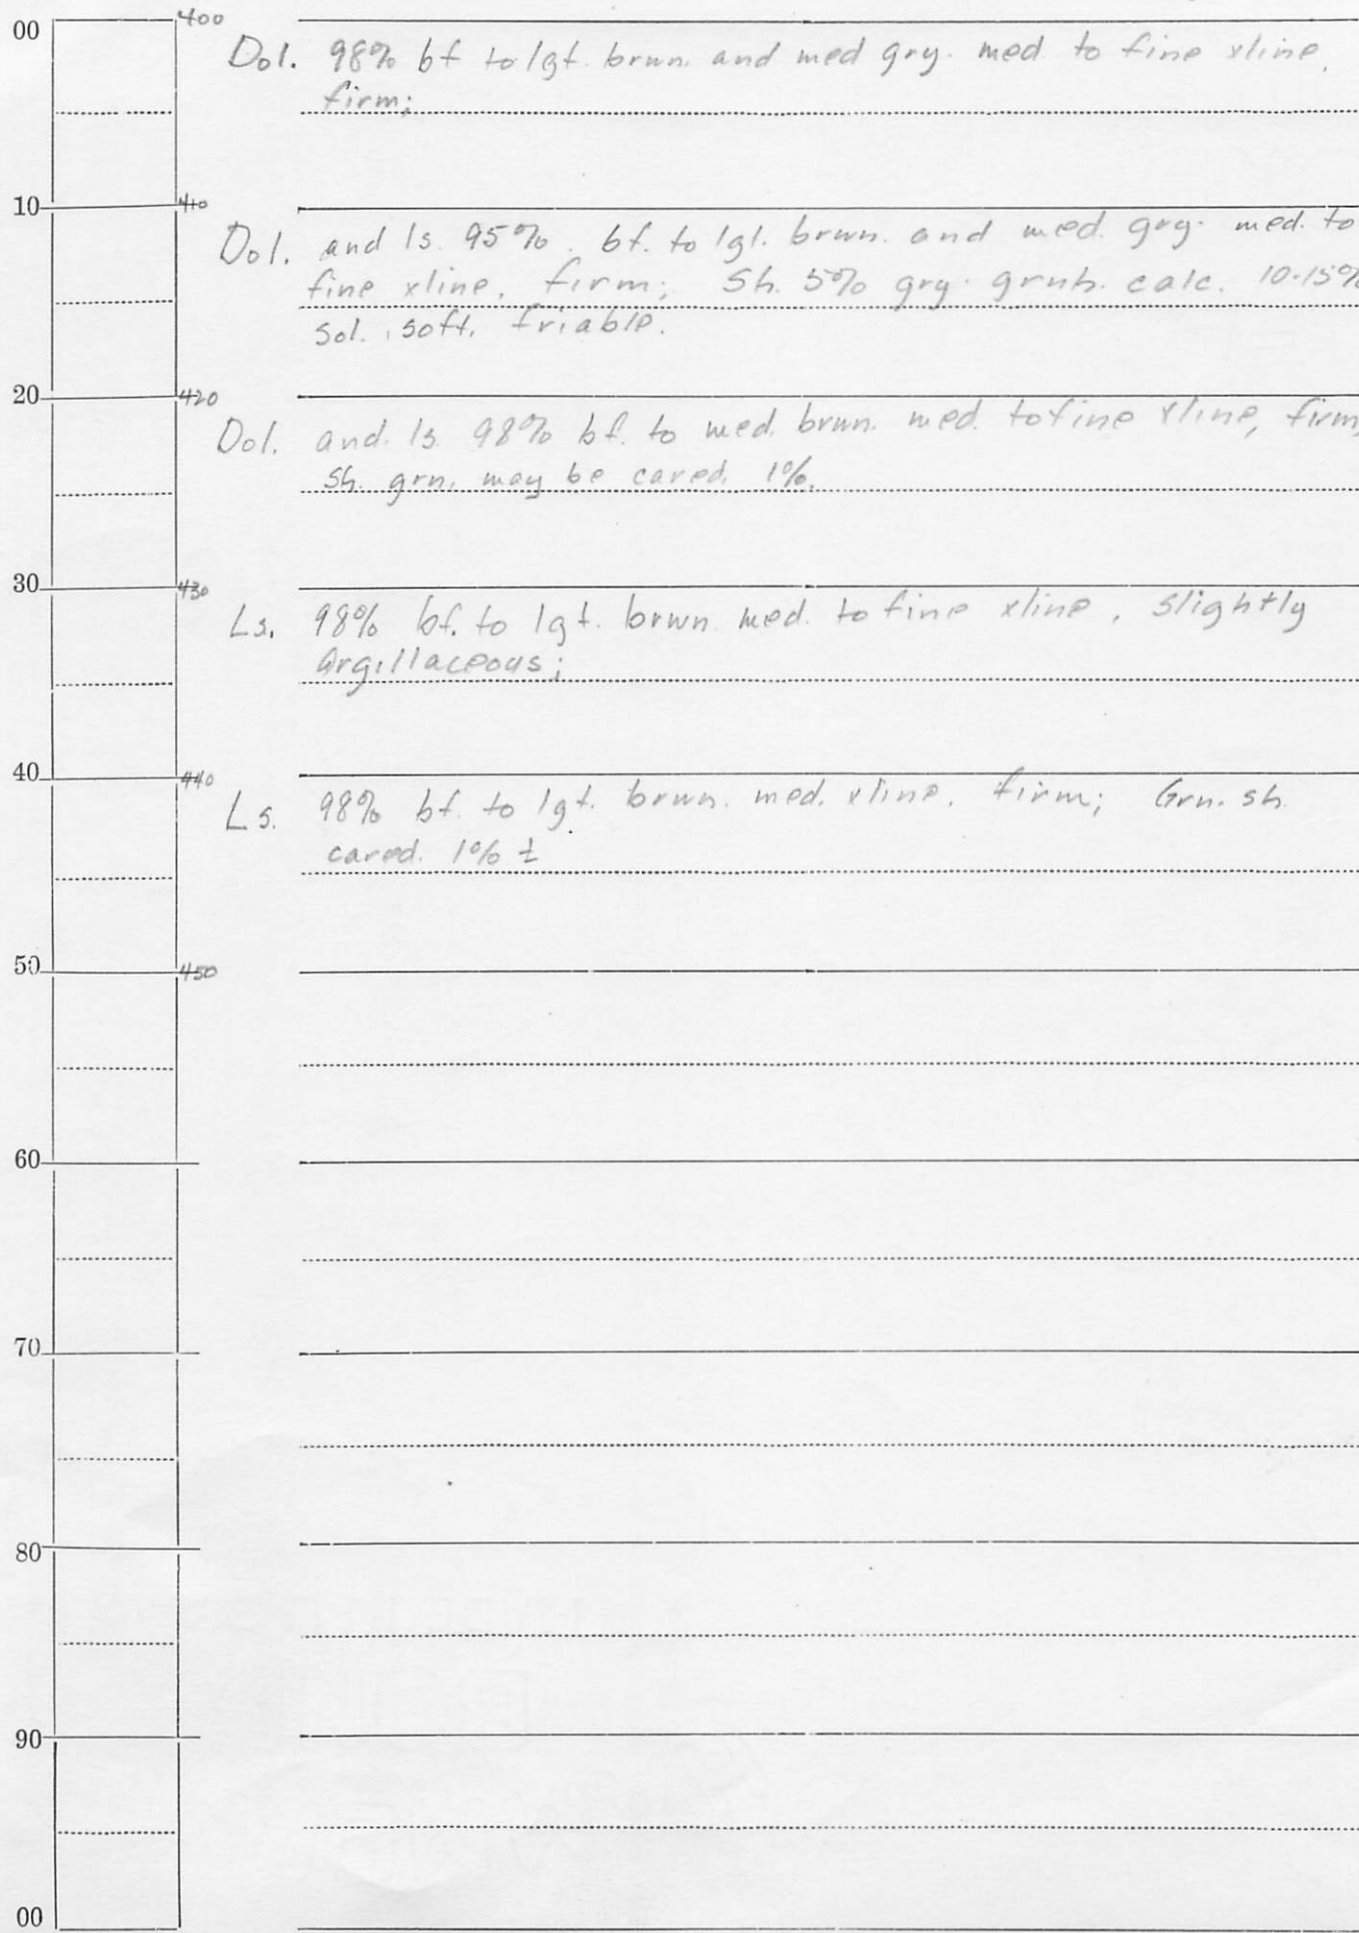 00 400
Dol. 98% bf to lgt. brwn. and med gry. med to fine xline,
firm;
10 410
Dol. and ls. 95%. bf. to lgt. brwn. and med. gry. med. to
fine xline, firm; Sh. 5% gry. grnh. calc. 10-15%
sol., soft, friable.
20 420
Dol. and. ls. 98% bf. to med. brwn. med. to fine xline, firm,
sh. grn. may be caved. 1%.
30 430
Ls. 98% bf. to lgt. brwn med. to fine xline, slightly
argillaceous;
40 440
Ls. 98% bf. to lgt. brwn. med. xline, firm; Grn. sh.
caved. 1% ±
50 450
60
70
80
90
00